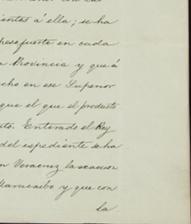 ientas á ella; se ha
presupueste en cada
a Provincia y que á
cho en ese Superior
que el que el producto
uto. Enterado el Rey
del espediente se ha
n Veracruz la
Maracaibo y que con
la